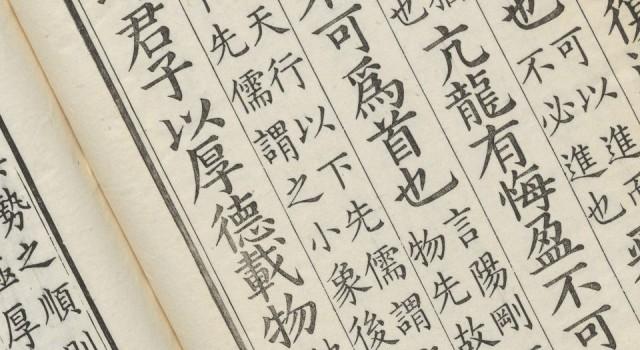 也
可以進而
不必進也
也
亢龍有悔盈不可
可爲首也
言陽剛
物先故
天行以下先儒謂
先儒謂之小象後
君子以厚德載物
勢之順則
厚